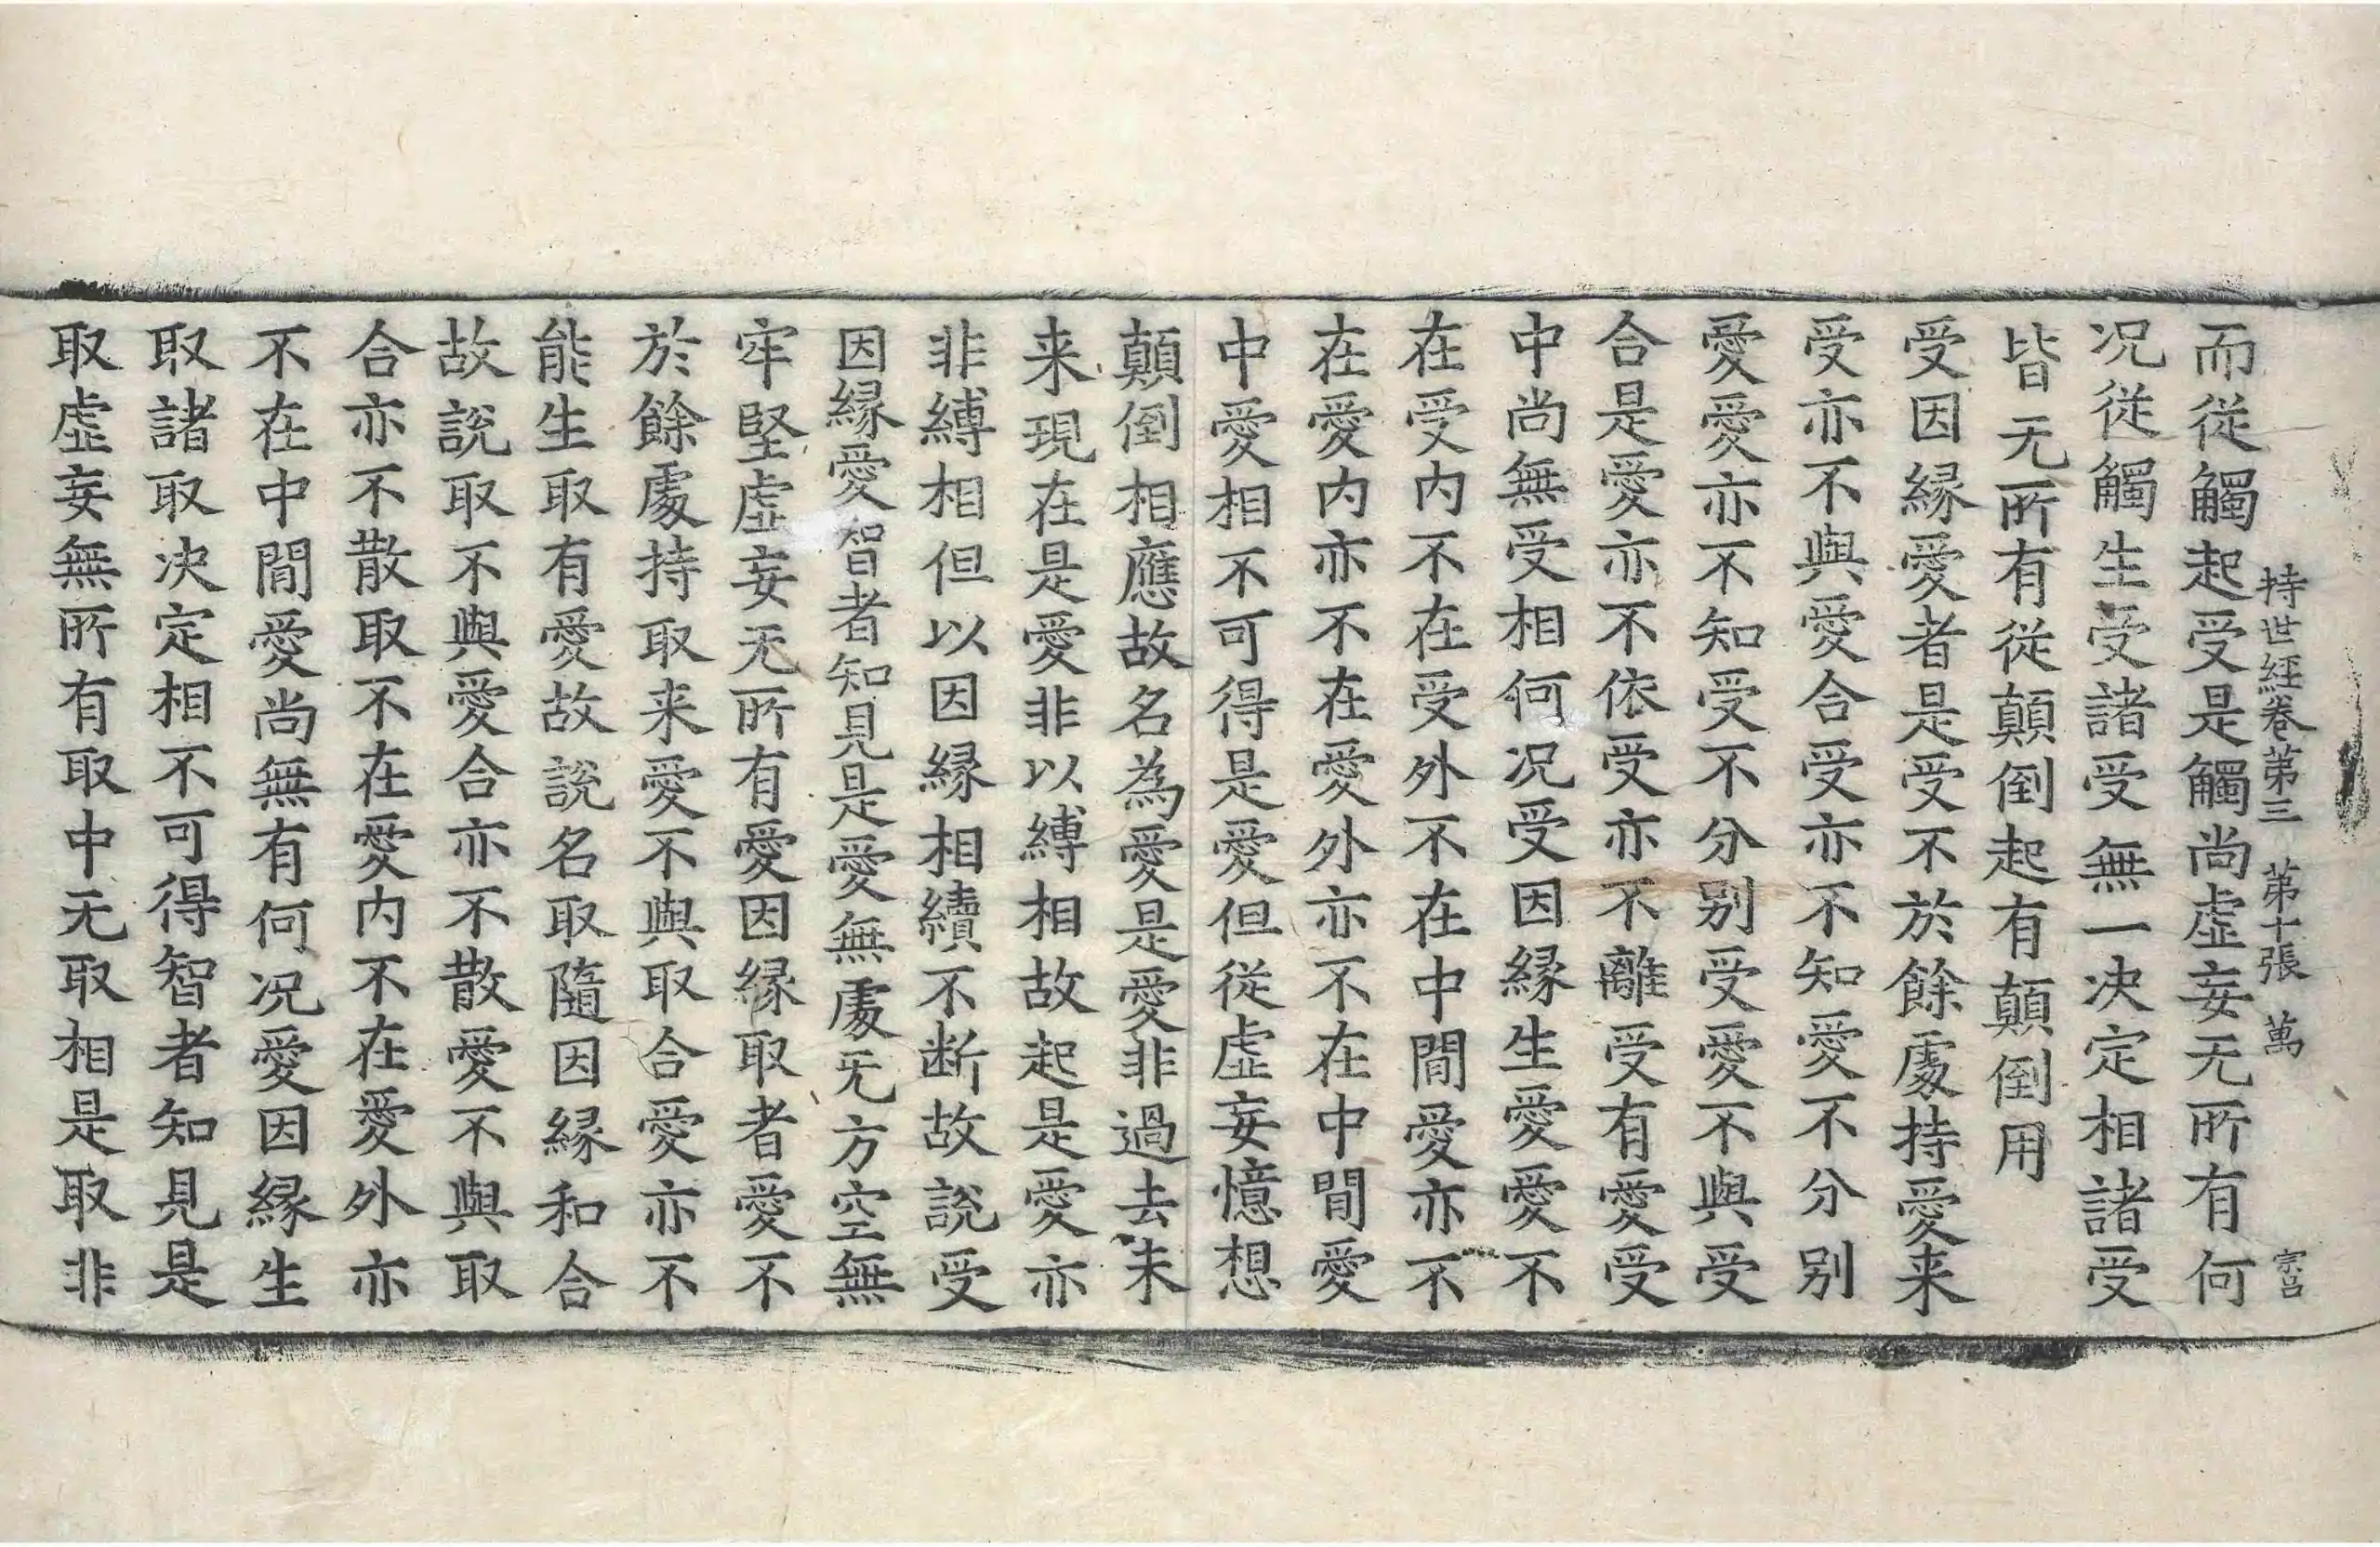 持世經卷第三 第十張 萬 宗呂
而從觸起受是觸尚虛妄无所有何
况從觸生受諸受無一决定相諸受
皆无所有從顛倒起有顛倒用
受因緣愛者是受不於餘處持愛来
受亦不與愛合受亦不知愛不分别
愛愛亦不知受不分别受愛不與受
合是愛亦不依受亦不離受有愛受
中尚無受相何况受因緣生愛愛不
在受内不在受外不在中間愛亦不
在愛内亦不在愛外亦不在中間愛
中愛相不可得是愛但從虛妄憶想
顛倒相應故名為愛是愛非過去未
来現在是愛非以縛相故起是愛亦
非縛相但以因緣相續不断故說受
因緣愛智者知見是愛無處无方空無
牢堅虛妄无所有愛因緣取者愛不
於餘處持取来愛不與取合愛亦不
能生取有愛故說名取隨因緣和合
故說取不與愛合亦不散愛不與取
合亦不散取不在愛内不在愛外亦
不在中間愛尚無有何况愛因緣生
取諸取决定相不可得智者知見是
取虛妄無所有取中无取相是取非